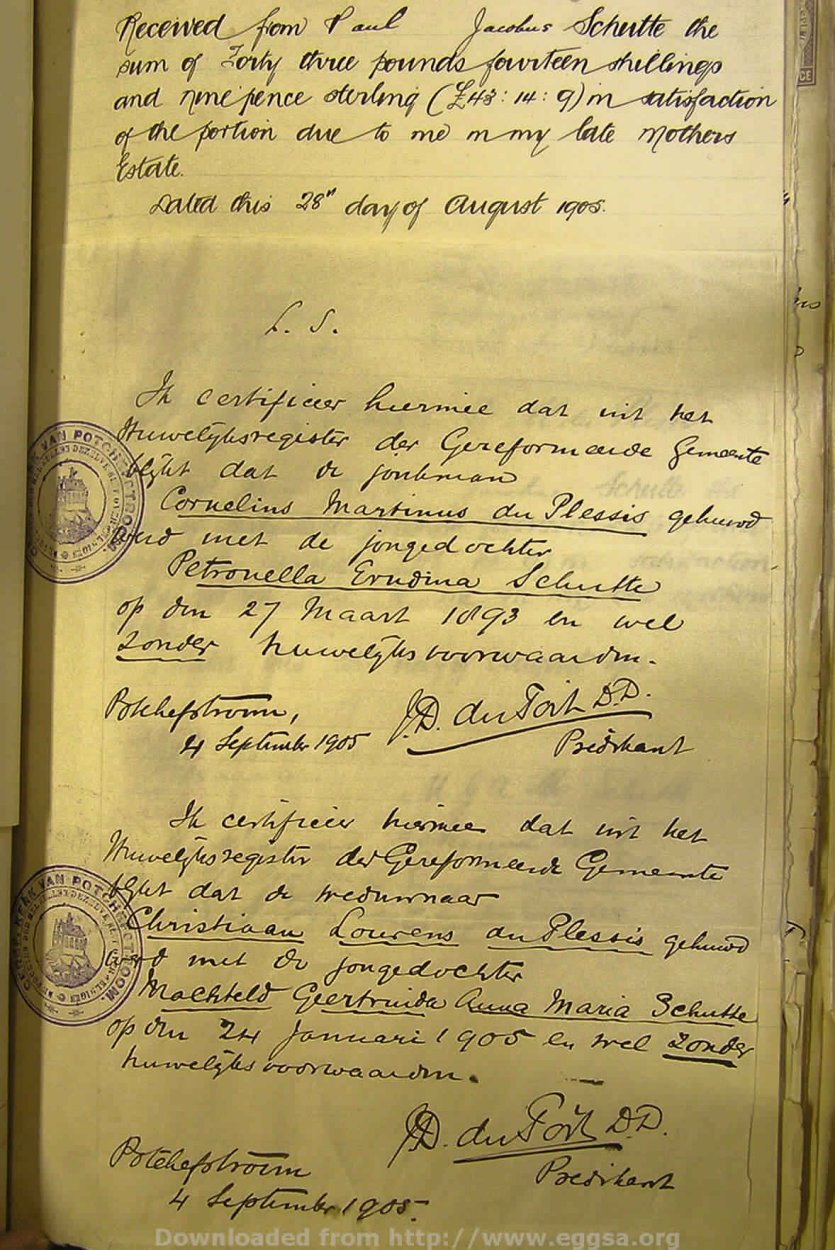 Received from Paul Jacobus Schutte the
sum of Forty three pounds fourteen shillings
and nine pence sterling (£43:14:9) in satisfaction
of the portion due to me in my late Mothers
Estate.
Dated this 28th day of August 1905.
L. S.
Ik certificeer hiermee dat uit het
Huwelijksregister der Gereformeerde Gemeente
blijkt dat de jonkman
Cornelius Martinus du Plessis gehuwd
werd met de jongedochter
Petronella Erudina Schutte
op den 27 Maart 1893 en wel
zonder huwelijksvoorwaarden.
Potchefstroom,
4 September 1905
J.D. du Toit D.D.
Predikant
Ik certificeer hiermee dat uit het
Huwelijksregister der Gereformeerde Gemeente
blijkt dat de weduwnaar
Christiaan Lourens du Plessis gehuwd
werd met de jongedochter
Machteld Geertruida Anna Maria Schutte
op den 24 Januari 1905 en wel zonder
huwelijksvoorwaarden.
J.D. du Toit D.D.
Predikant
Potchefstroom
4 September 1905
VAN POTCHEFSTROOM
KERK VAN POTCHEFSTROOM
Downloaded from http://www.eggsa.org